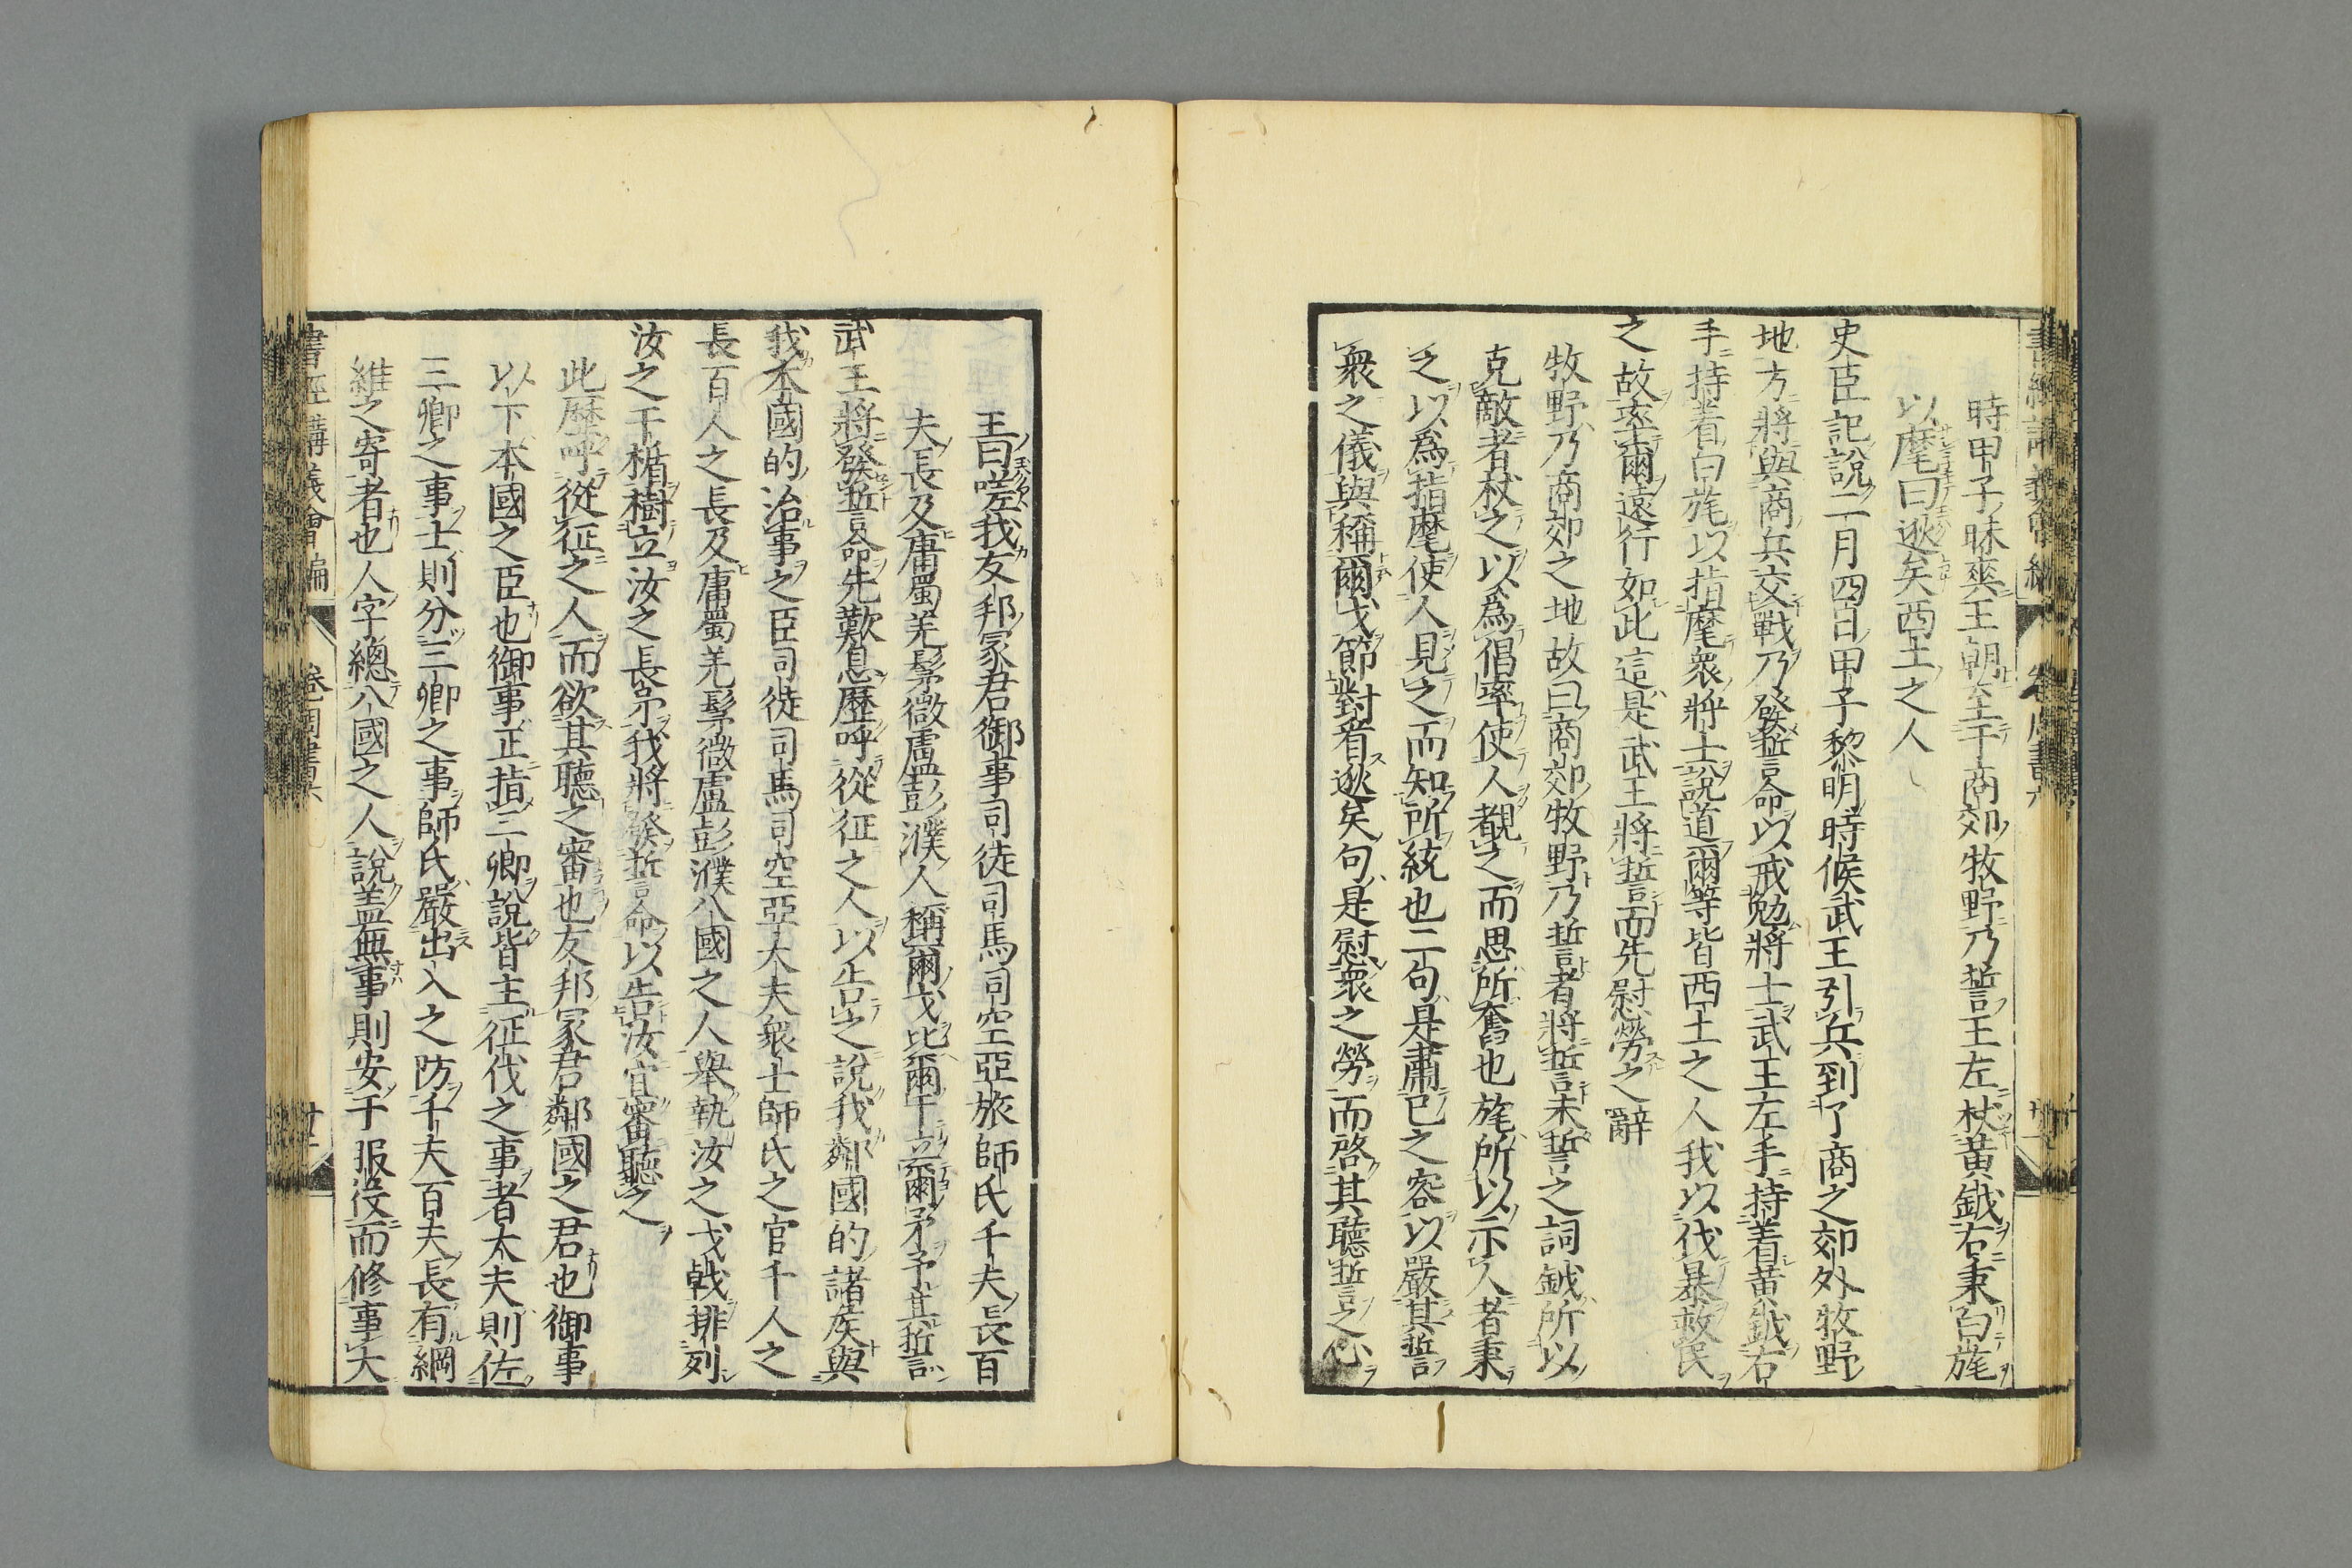 時甲子昧爽王朝至于商郊牧野乃誓王左杖黄鉞右秉白旄
以麾曰逖矣西土之人
史臣記說二月四日甲子黎明時候武王引兵到了商之郊外牧野
地方將與商兵交戰乃發誓命以戒勉將士武王左手持着黄鉞右
手持着白旄以指麾衆將士說道爾等皆西土之人我以伐暴救民
之故率爾遠行如此這是武王將誓而先慰勞之辭
牧野乃商郊之地故曰商郊牧野乃誓者將誓未誓之詞鉞所以
克敵者杖之以爲倡率使人覩之而思所奮也旄所以示人者秉
之以爲指麾使人見之而知所統也二句是肅已之容以嚴其誓
衆之儀與稱爾戈節對看逖矣句是慰衆之勞而啓其聽誓之心
王曰嗟我友邦冢君御事司徒司馬司空亞旅師氏千夫長百
夫長及庸蜀羌髳微盧彭濮人稱爾戈比爾干立爾矛予其誓
武王將發誓命先歎息歷呼從征之人以告之說我鄰國的諸侯與
我本國的治事之臣司徒司馬司空亞大夫衆士師氏之官千人之
長百人之長及庸蜀羌髳微盧彭濮八國之人舉執汝之戈戟排列
汝之干楯樹立汝之長矛我將發誓命以告汝宜審聽之
此歷呼從征之人而欲其聽之審也友邦冢君鄰國之君也御事
以下本國之臣也御事正指三卿說皆主征伐之事者大夫則佐
三卿之事士則分三卿之事師氏嚴出入之防千夫百夫長有綱
維之寄者也人字總八國之人說蓋無事則安于服役而修事大
書經講義會編
卷 周書六